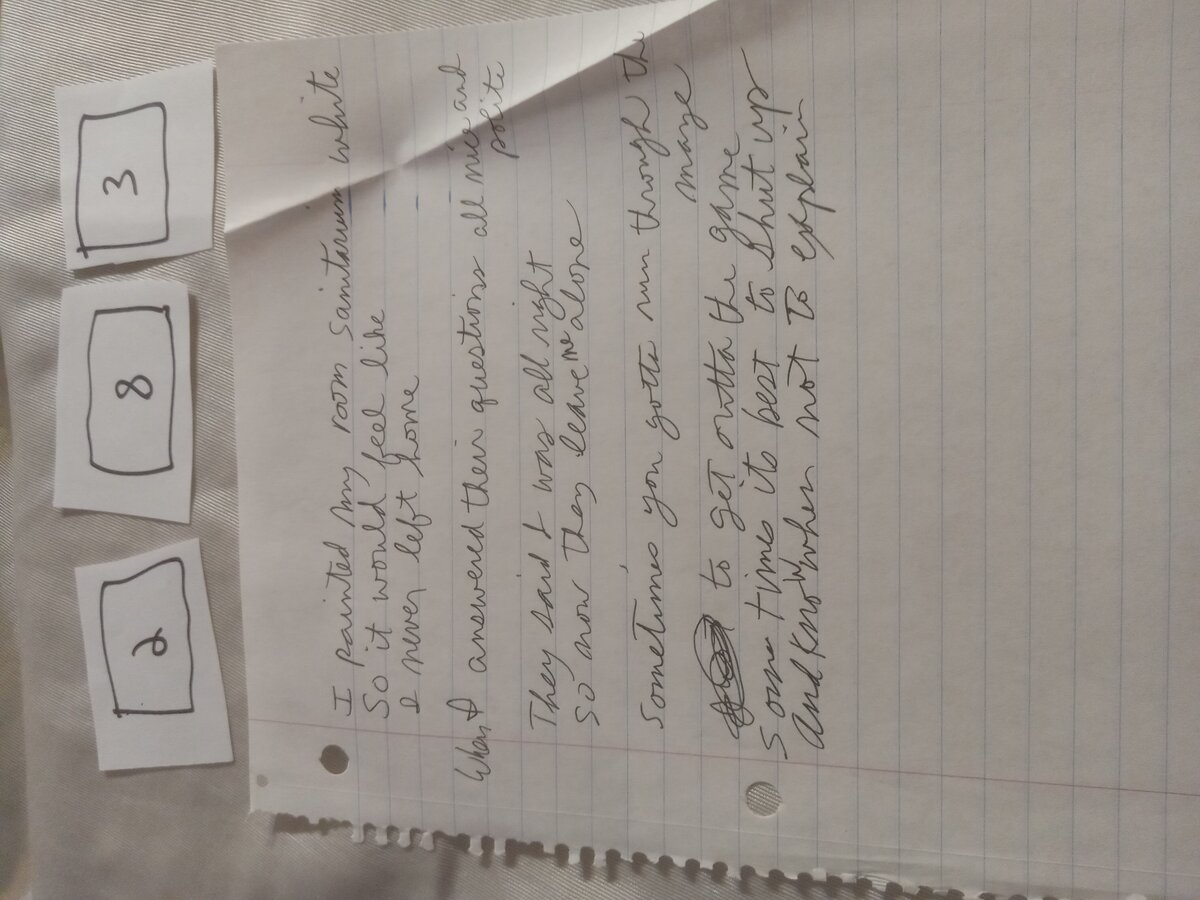 2
8
3
I painted my room Sanitarium white
So it would feel like
I never left home
When I answered their questions all nice and
polite
They said I was all right
So now they leave me alone
Sometimes you gotta run through the
maze
to get outta the game
Some times its best to shut up
and know when not to explain